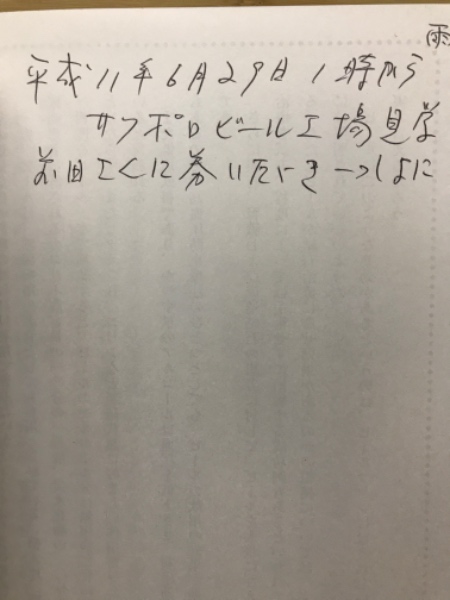 雨
平成11年6月29日1時から
サッポロビール工場見学
前田さんに券いただき一っしょに